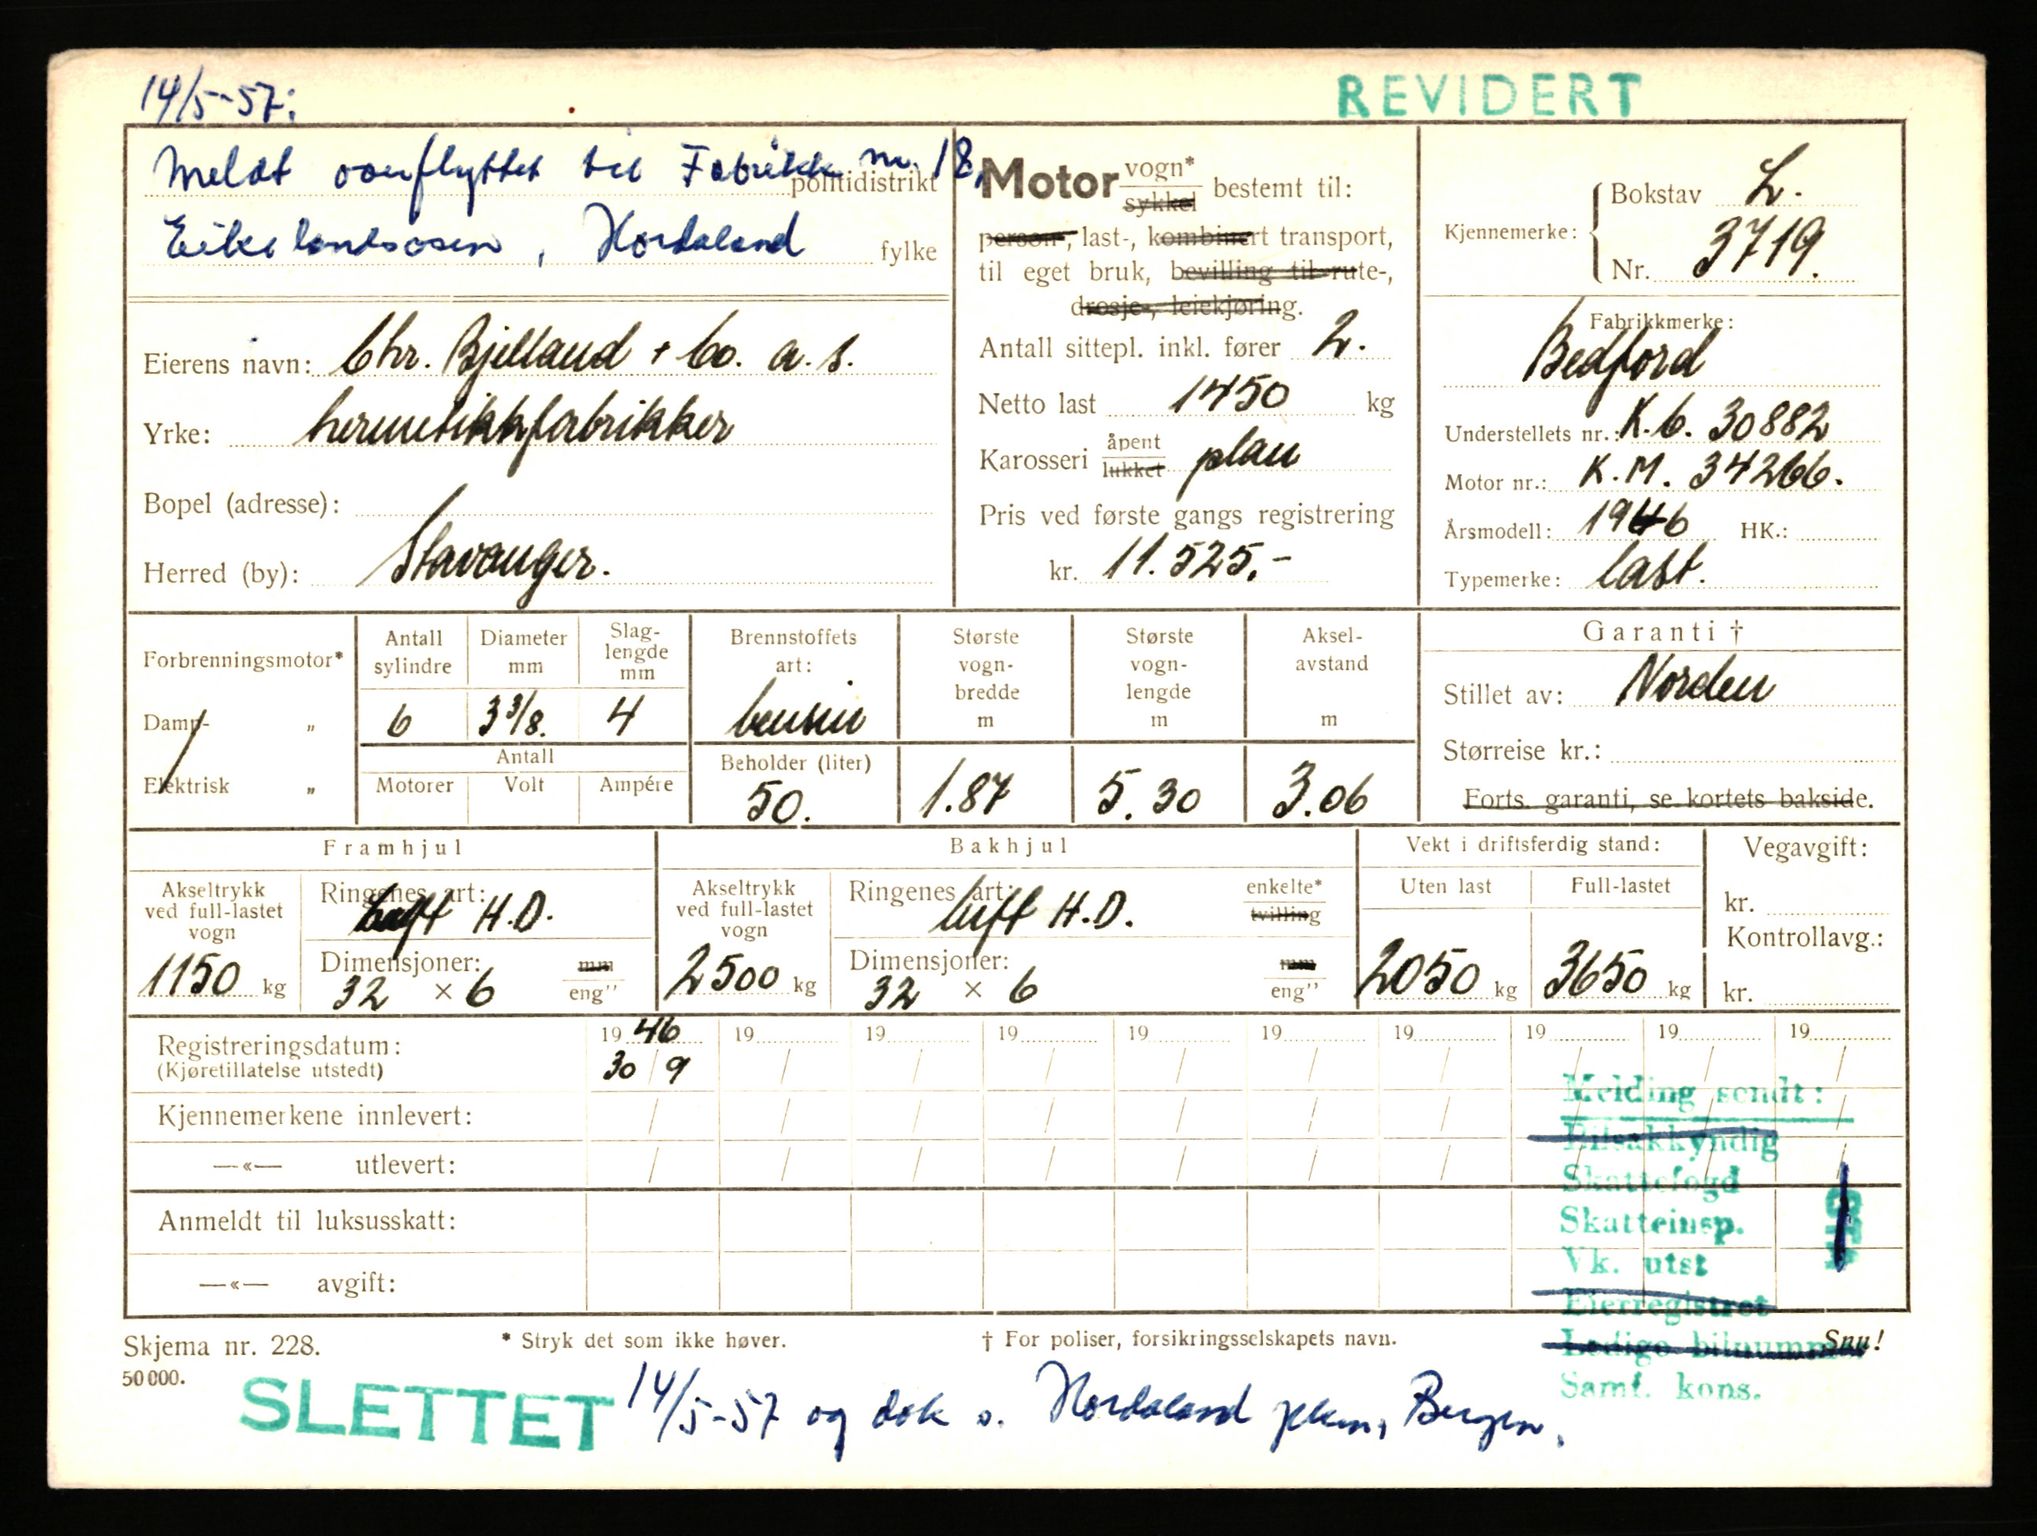 14/5-57:
REVIDERT
Meldt overflyttet til Fabrikk nr. 18,
politidistrikt
Eikelandsosen, Hordaland fylke
Eierens navn: Chr. Bjelland + Co. a.s.
Yrke: hermetikkfabrikker
Bopel (adresse):
Herred (by): Stavanger.
Motor vogn* sykkel bestemt til:
person-, last-, kombinert transport,
til eget bruk, bevilling til rute-,
drosje-, leiekjøring.
Antall sittepl. inkl. fører 2.
Netto last 1450 kg
Karosseri åpent lukket plan
Pris ved første gangs registrering
kr. 11.525,-
Kjennemerke: Bokstav L.
Nr. 3719.
Fabrikkmerke:
Bedford
Understellets nr.: K.C. 30882
Motor nr.: K.M. 34266.
Årsmodell: 1946 HK.:
Typemerke: last.
Forbrenningsmotor*
Damp- „
Elektrisk „
Antall sylindre
6
Diameter mm
3 3/8.
Slaglengde mm
4
Antall
Motorer Volt Ampére
Brennstoffets art:
bensin
Beholder (liter)
50.
Største vogn-bredde m
1.87
Største vogn-lengde m
5.30
Aksel-avstand m
3.06
Garanti †
Stillet av: Norden
Størreise kr.:
Forts. garanti, se kortets bakside.
Framhjul
Akseltrykk ved full-lastet vogn
1150 kg
Ringenes art:
luft H.D.
Dimensjoner: mm
32 × 6 eng"
Bakhjul
Akseltrykk ved full-lastet vogn
2500 kg
Ringenes art: enkelte*
luft H.D. tvilling
Dimensjoner: mm
32 × 6 eng"
Vekt i driftsferdig stand:
Uten last Full-lastet
2050 kg 3650 kg
Vegavgift:
kr.
Kontrollavg.:
kr.
Registreringsdatum: 19 46 19 19 19 19 19 19 19 19 19
(Kjøretillatelse utstedt) 30 / 9
Kjennemerkene innlevert:
—«— utlevert:
Anmeldt til luksusskatt:
—«— avgift:
Melding sendt:
Bilsakkyndig
Skattefogd
Skatteinsp.
Vk. utst
Eierregistret
Ledige bilnumm
Samf. kons.
Skjema nr. 228.
* Stryk det som ikke høver.
† For poliser, forsikringsselskapets navn.
Snu!
50 000.
SLETTET 14/5-57 og dok s. Hordaland Bergen.